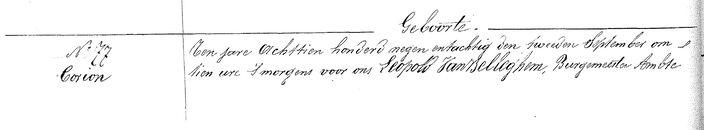 Geboorte.
N.º 77
Corion
Ten jare Achttien honderd negen entachtig den tweeden September om
tien ure 's morgens voor ons Leopold Van Belleghem, Burgemeester Ambte